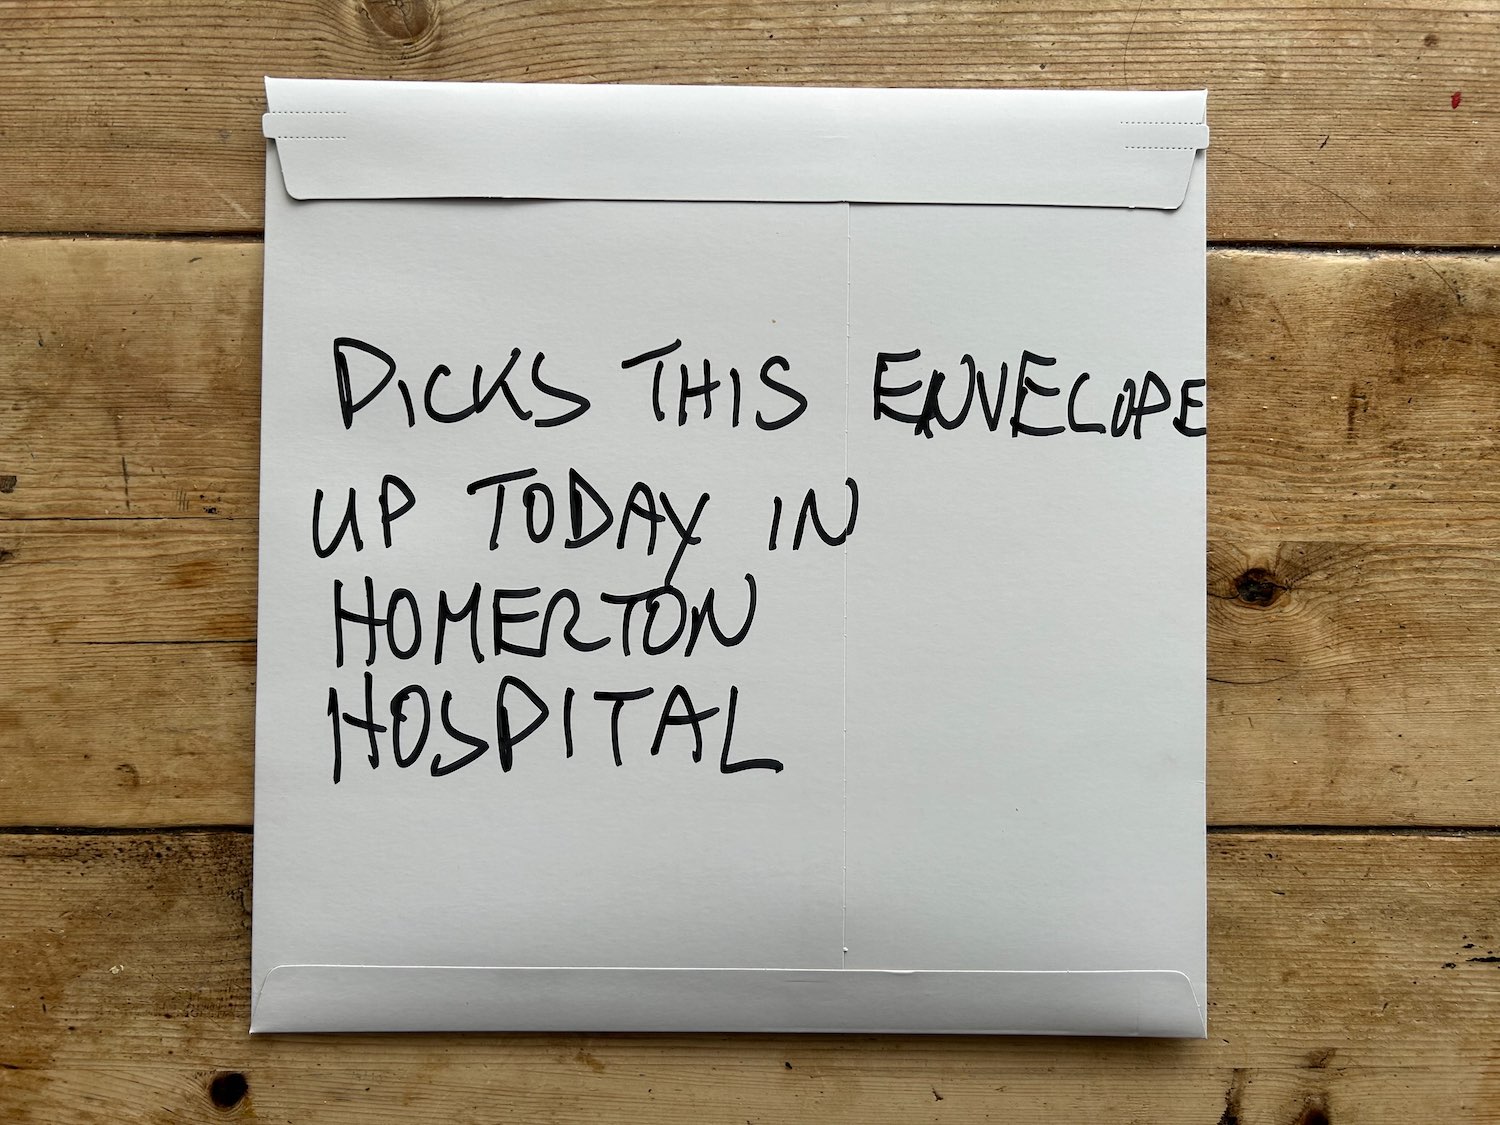 DICKS THIS ENVELOPE
UP TODAY IN
HOMERTON
HOSPITAL